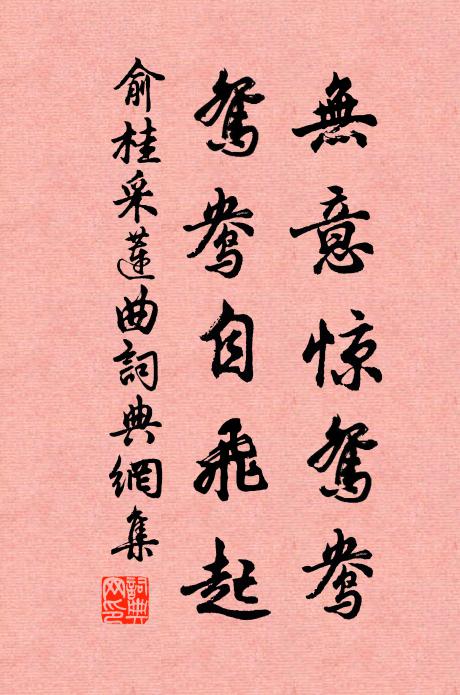 無意惊鴛鴦
鴛鴦自飛起
俞桂采蓮曲詞典網集
詞典
网印